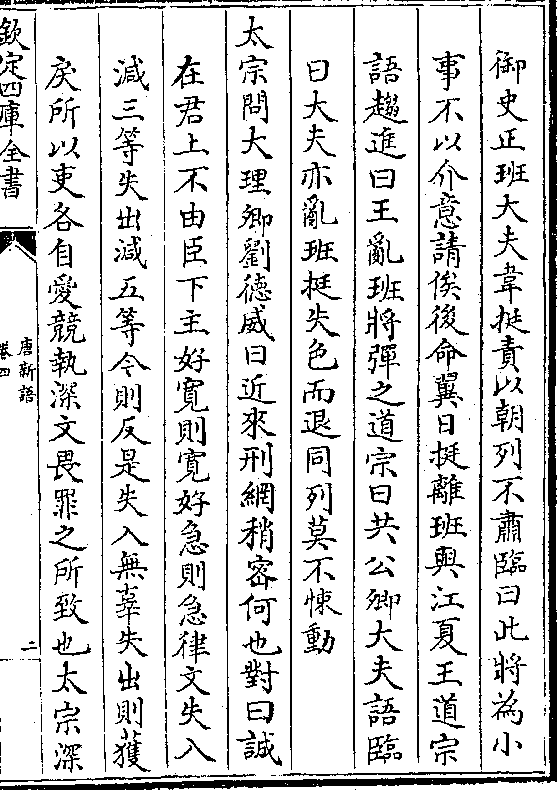 御史正班大夫韋挺責以朝列不肅臨曰此將為小
事不以介意請俟後命翼日挺離班與江夏王道宗
語趨進曰王亂班將彈之道宗曰共公卿大夫語臨
曰大夫亦亂班挺失色而退同列莫不悚動
太宗問大理卿劉德威曰近來刑網稍密何也對曰誠
在君上不由臣下主好寛則寛好急則急律文失入
減三等失出減五等令則反是失入無辜失出則獲
戾所以吏各自愛競執深文畏罪之所致也太宗深
欽定四庫全書
唐新語
卷四
二